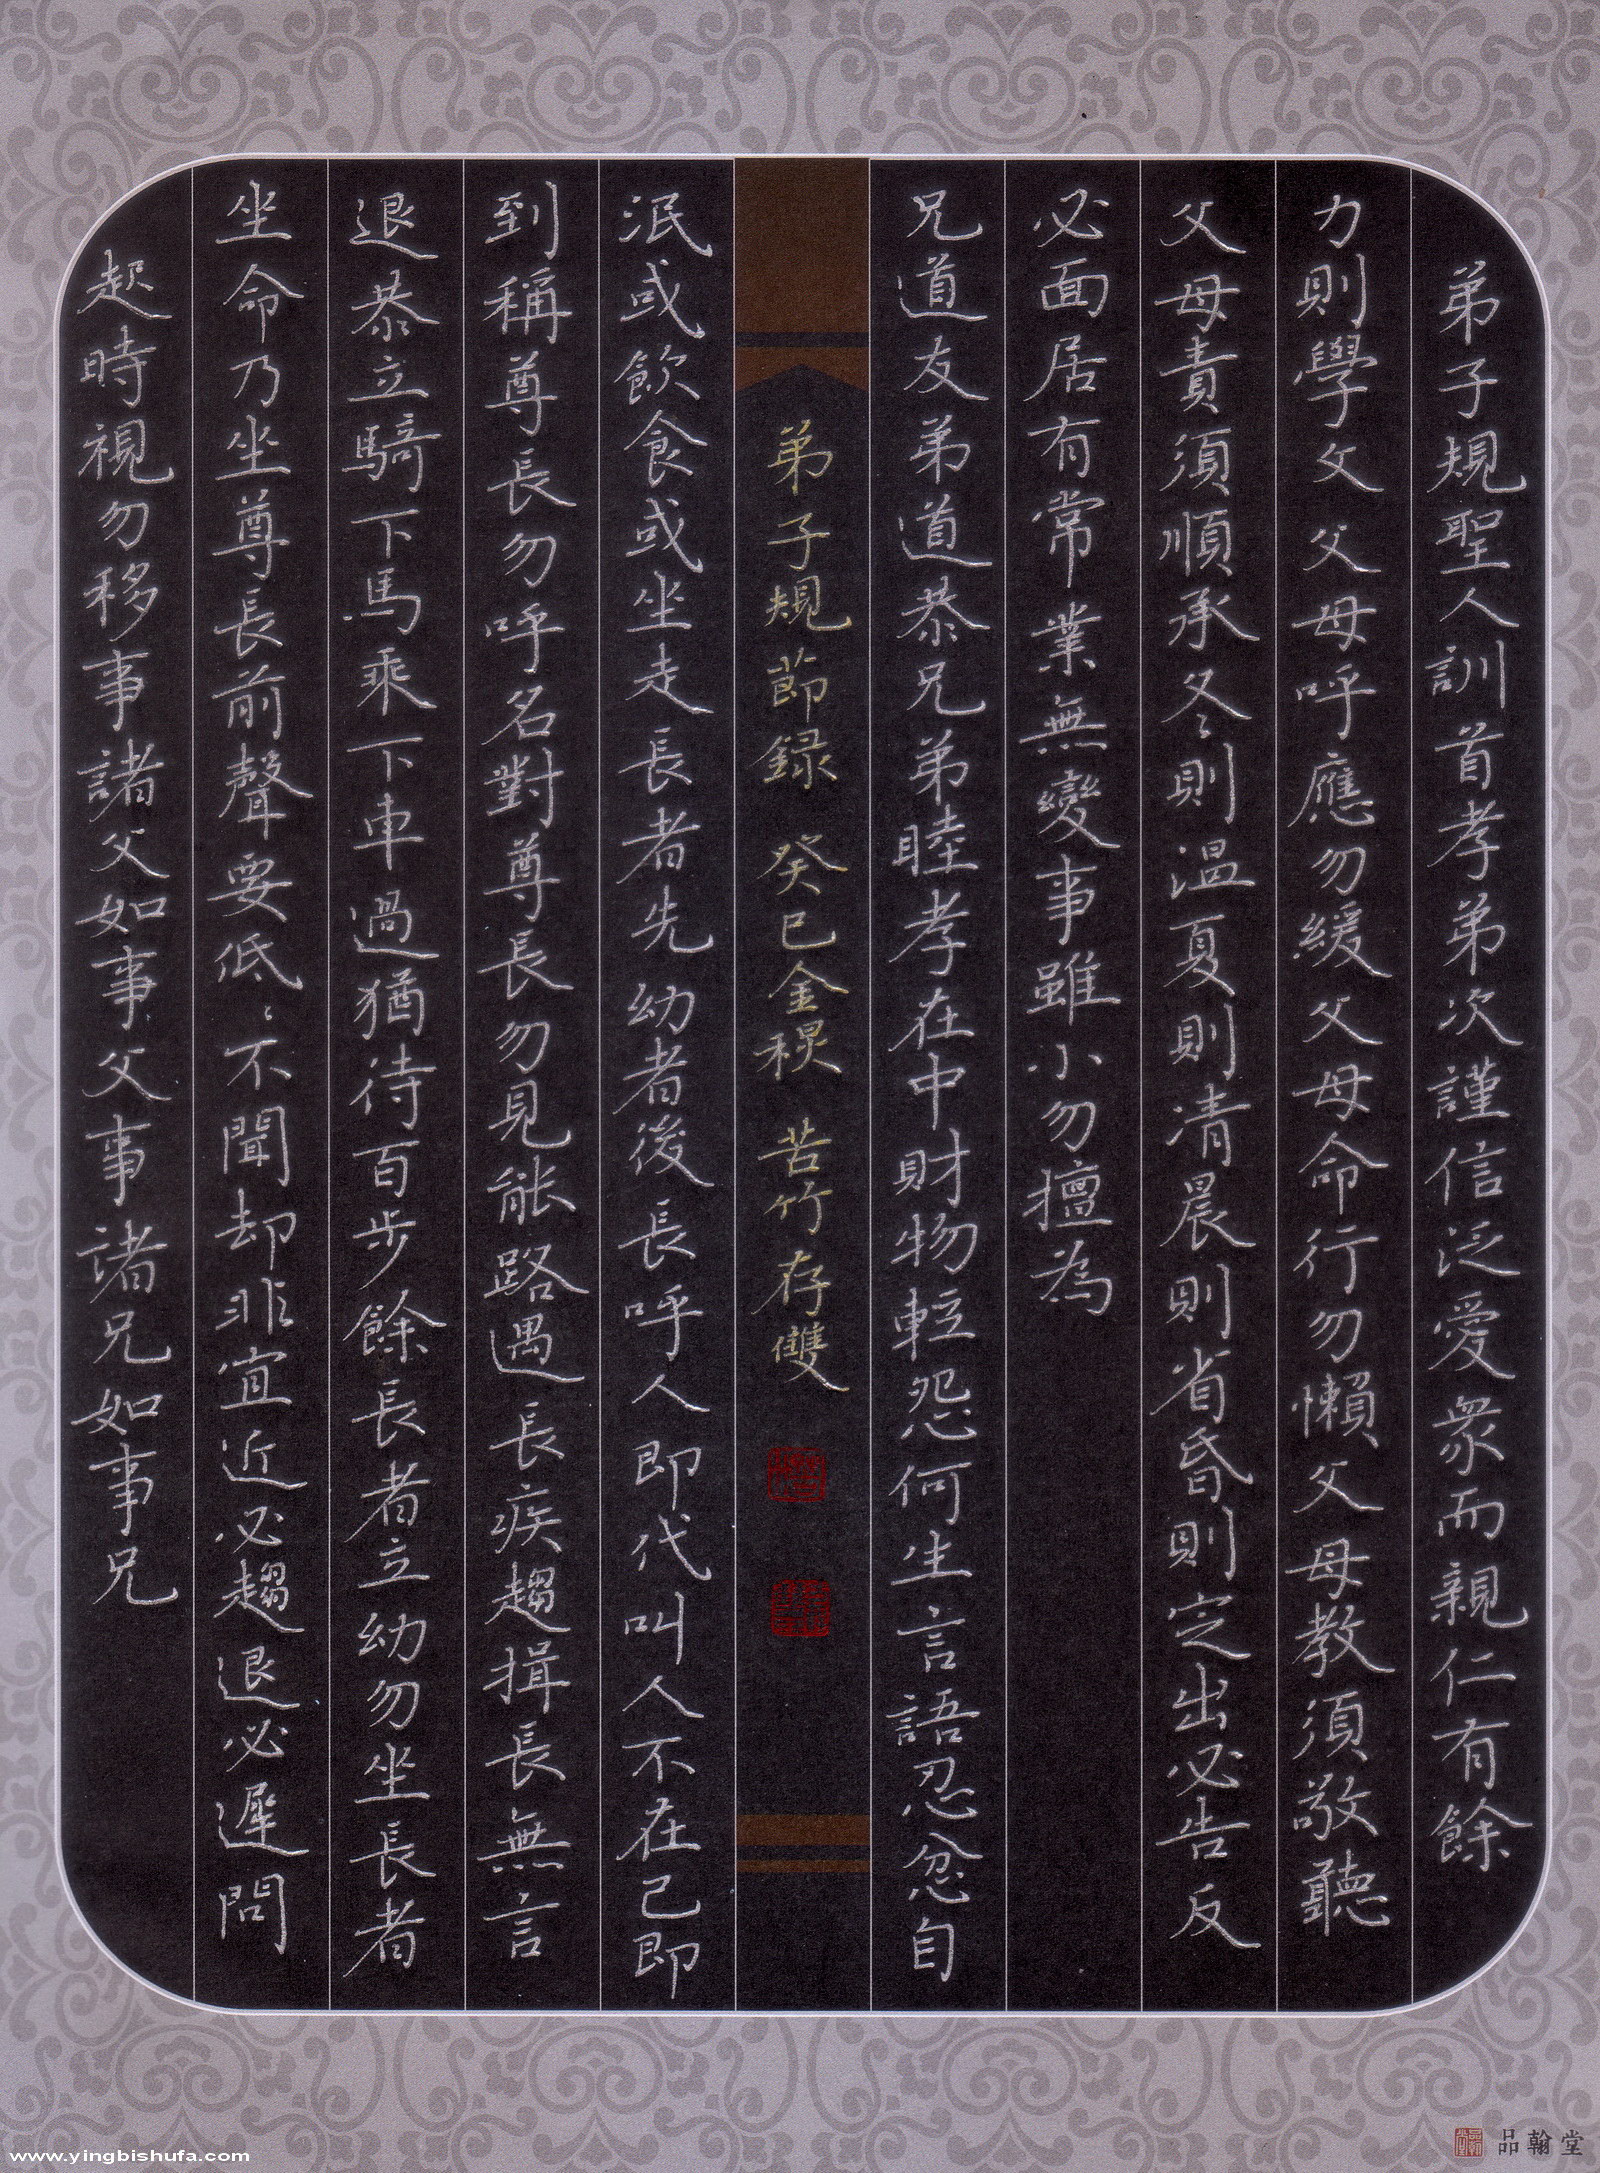 弟子規聖人訓首孝弟次謹信泛愛衆而親仁有餘
力則學文父母呼應勿緩父母命行勿懶父母教須敬聽
父母責須順承冬則溫夏則凊晨則省昏則定出必告反
必面居有常業無變事雖小勿擅為
兄道友弟道恭兄弟睦孝在中財物輕怨何生言語忍忿自
弟子規節録 癸巳金秋 苦竹存雙
泯或飲食或坐走長者先幼者後長呼人即代叫人不在己即
到稱尊長勿呼名對尊長勿見能路遇長疾趨揖長無言
退恭立騎下馬乘下車過猶待百步餘長者立幼勿坐長者
坐命乃坐尊長前聲要低〻不聞却非宜近必趨退必遲問
起時視勿移事諸父如事父事諸兄如事兄
品翰堂
www.yingbishufa.com